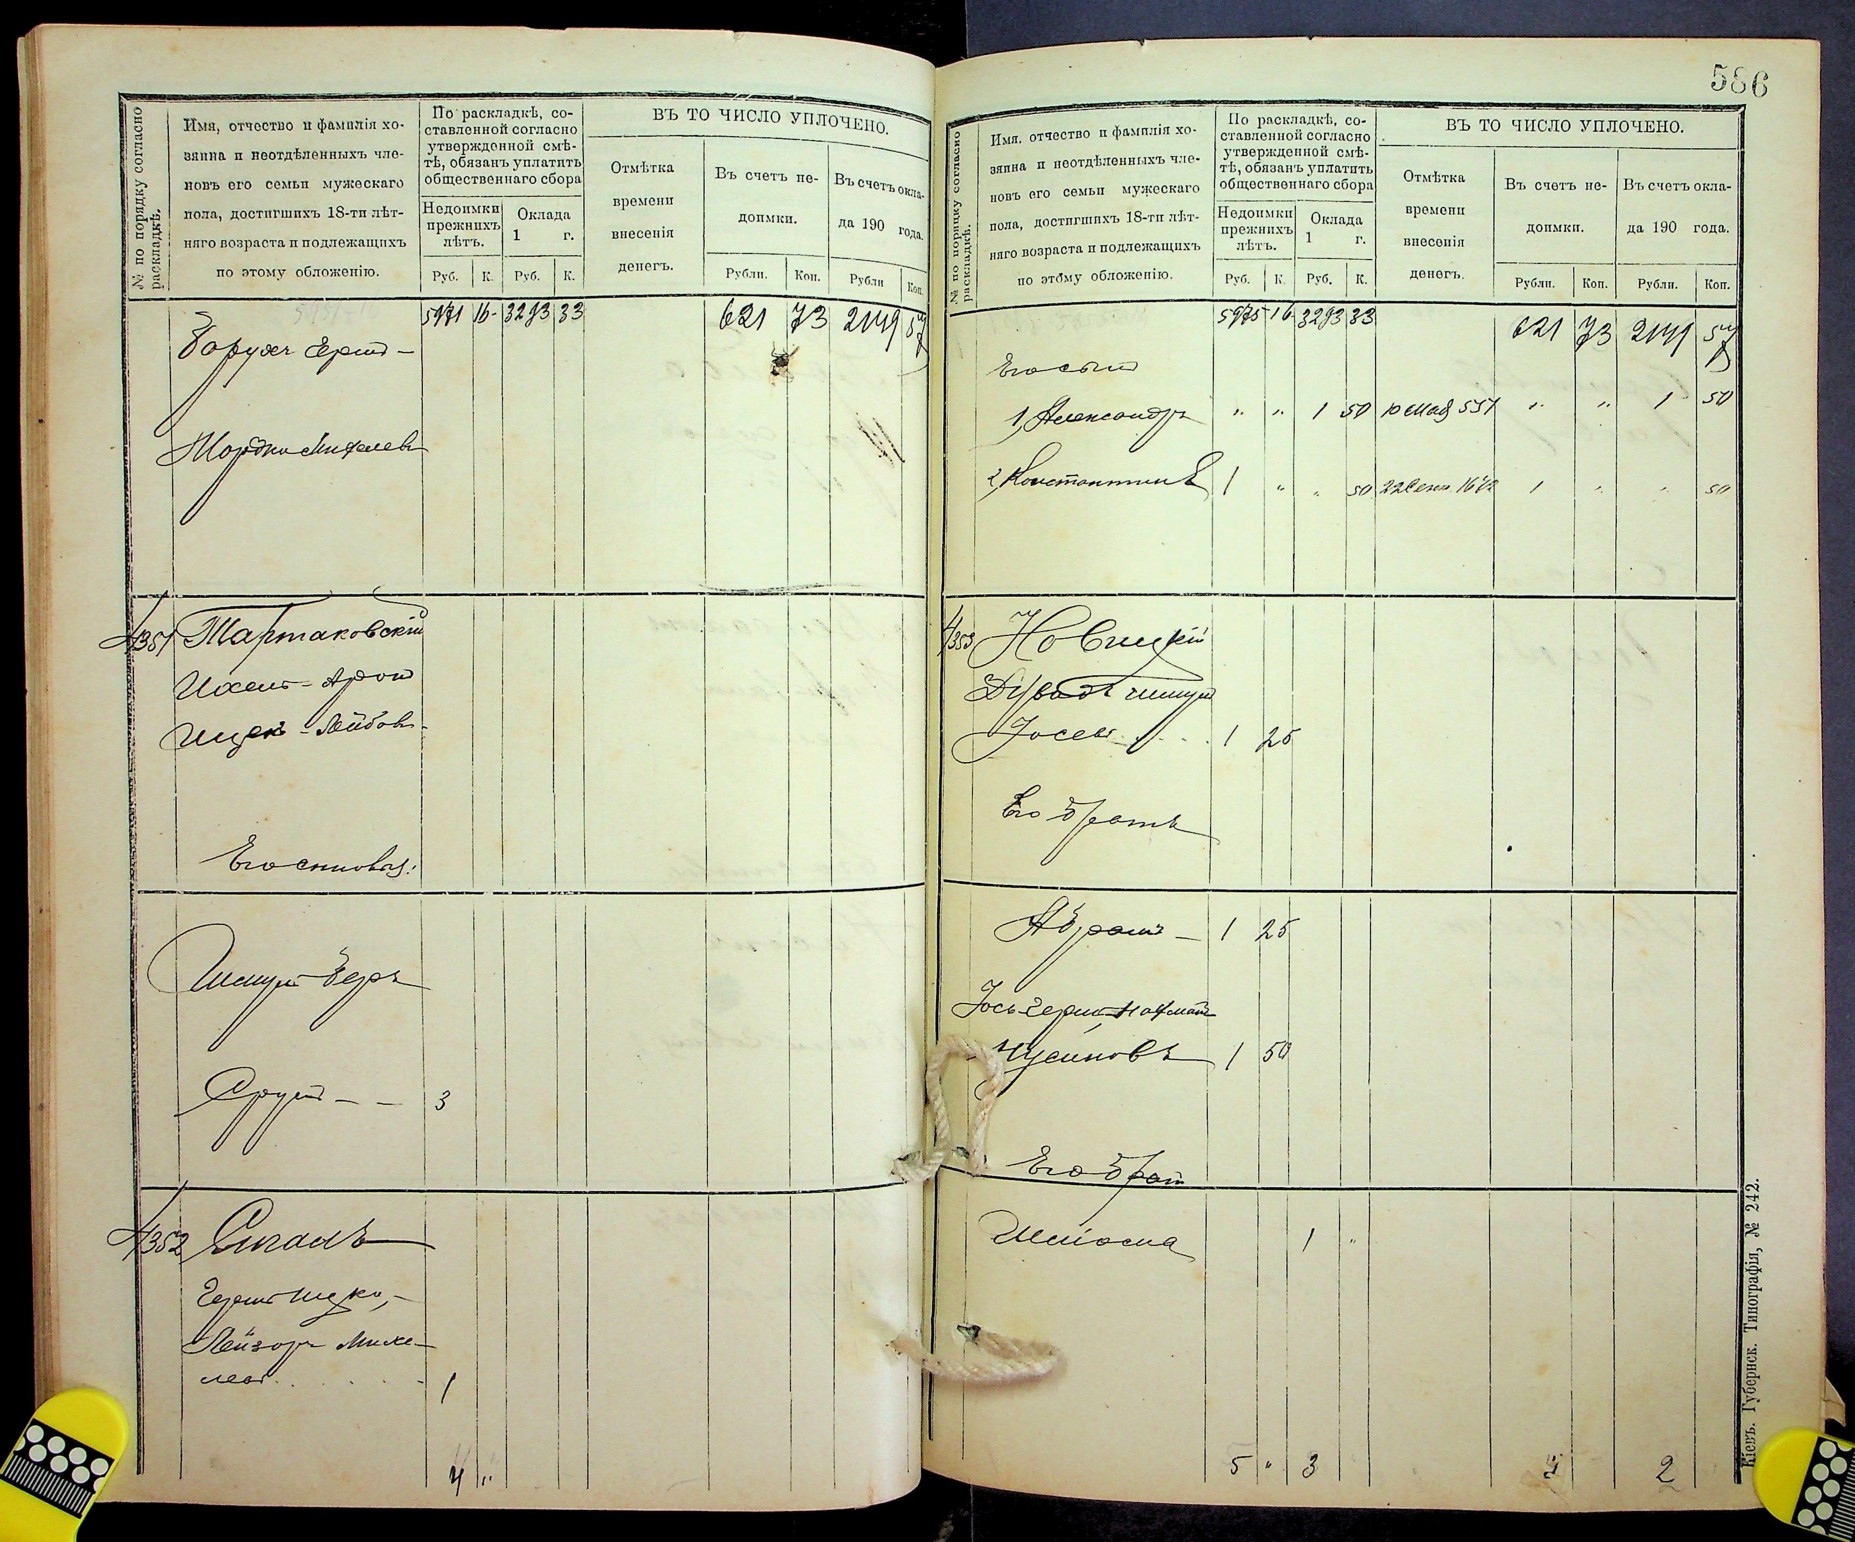 № по порядку согласно раскладкѣ.
Имя, отчество и фамилія хо-
зяина и неотдѣленныхъ чле-
новъ его семьи мужескаго
пола, достигшихъ 18-ти лѣт-
няго возраста и подлежащихъ
по этому обложенію.
По раскладкѣ, со-
ставленной согласно
утвержденной смѣ-
тѣ, обязанъ уплатить
общественнаго сбора
Недоимки прежнихъ лѣтъ.
Оклада 1 г.
Руб. К. Руб. К.
ВЪ ТО ЧИСЛО УПЛОЧЕНО.
Отмѣтка времени внесенія денегъ.
Въ счетъ не-
доимки.
Въ счетъ окла-
да 190 года.
Рубли. Коп. Рубли Коп.
5971 16 3293 33 621 73 2149 57
Борухъ Герш
Мордко
4351 Тартаковскій
Ицек - Лейбовъ
Его сыновья:
Шмул Беръ
Срул - - 3
4352 Сигалъ
Герш Ицко,
Лейзоръ Михе-
лев 1
4 "
586
№ по порядку согласно раскладкѣ.
Имя, отчество и фамилія хо-
зяина и неотдѣленныхъ чле-
новъ его семьи мужескаго
пола, достигшихъ 18-ти лѣт-
няго возраста и подлежащихъ
по этому обложенію.
По раскладкѣ, со-
ставленной согласно
утвержденной смѣ-
тѣ, обязанъ уплатить
общественнаго сбора
Недоимки прежнихъ лѣтъ.
Оклада 1 г.
Руб. К. Руб. К.
ВЪ ТО ЧИСЛО УПЛОЧЕНО.
Отмѣтка времени внесенія денегъ.
Въ счетъ не-
доимки.
Въ счетъ окла-
да 190 года.
Рубли. Коп. Рубли. Коп.
5975 16 3293 33 621 73 2149 57
Его сын
1, Александръ " " 1 50 10 мая 551 " " 1 50
2, Константинъ 1 " " 50 22 Сен 1642 1 " " 50
4353 Новицкій
Іосев 1 25
Его братъ
Абрам - 1 25
Нусиновъ 1 50
Его брат
Шліома 1 "
5 " 3 2
Кіевъ. Губернск. Типографія, № 242.